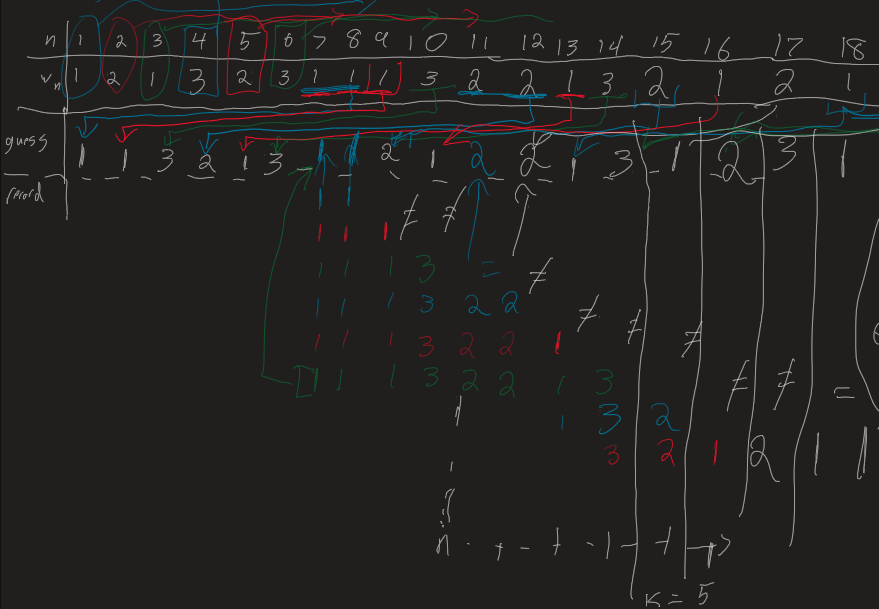 n 1 2 3 4 5 6 7 8 9 10 11 12 13 14 15 16 17 18
w_n 1 2 1 3 2 3 1 1 1 3 2 2 1 3 2 1 2 1
guess 1 1 3 2 1 3 2 1 2 2 1 3 1 2 3 1
record
1 1 1 ≠ ≠
1 1 1 3 = ≠
1 1 1 3 2 2 ≠ ≠
1 1 1 3 2 2 1 ≠
1 1 1 3 2 2 1 3 ≠ ≠ =
1 3 2
3 2 1 2 1 1
n
K = 5